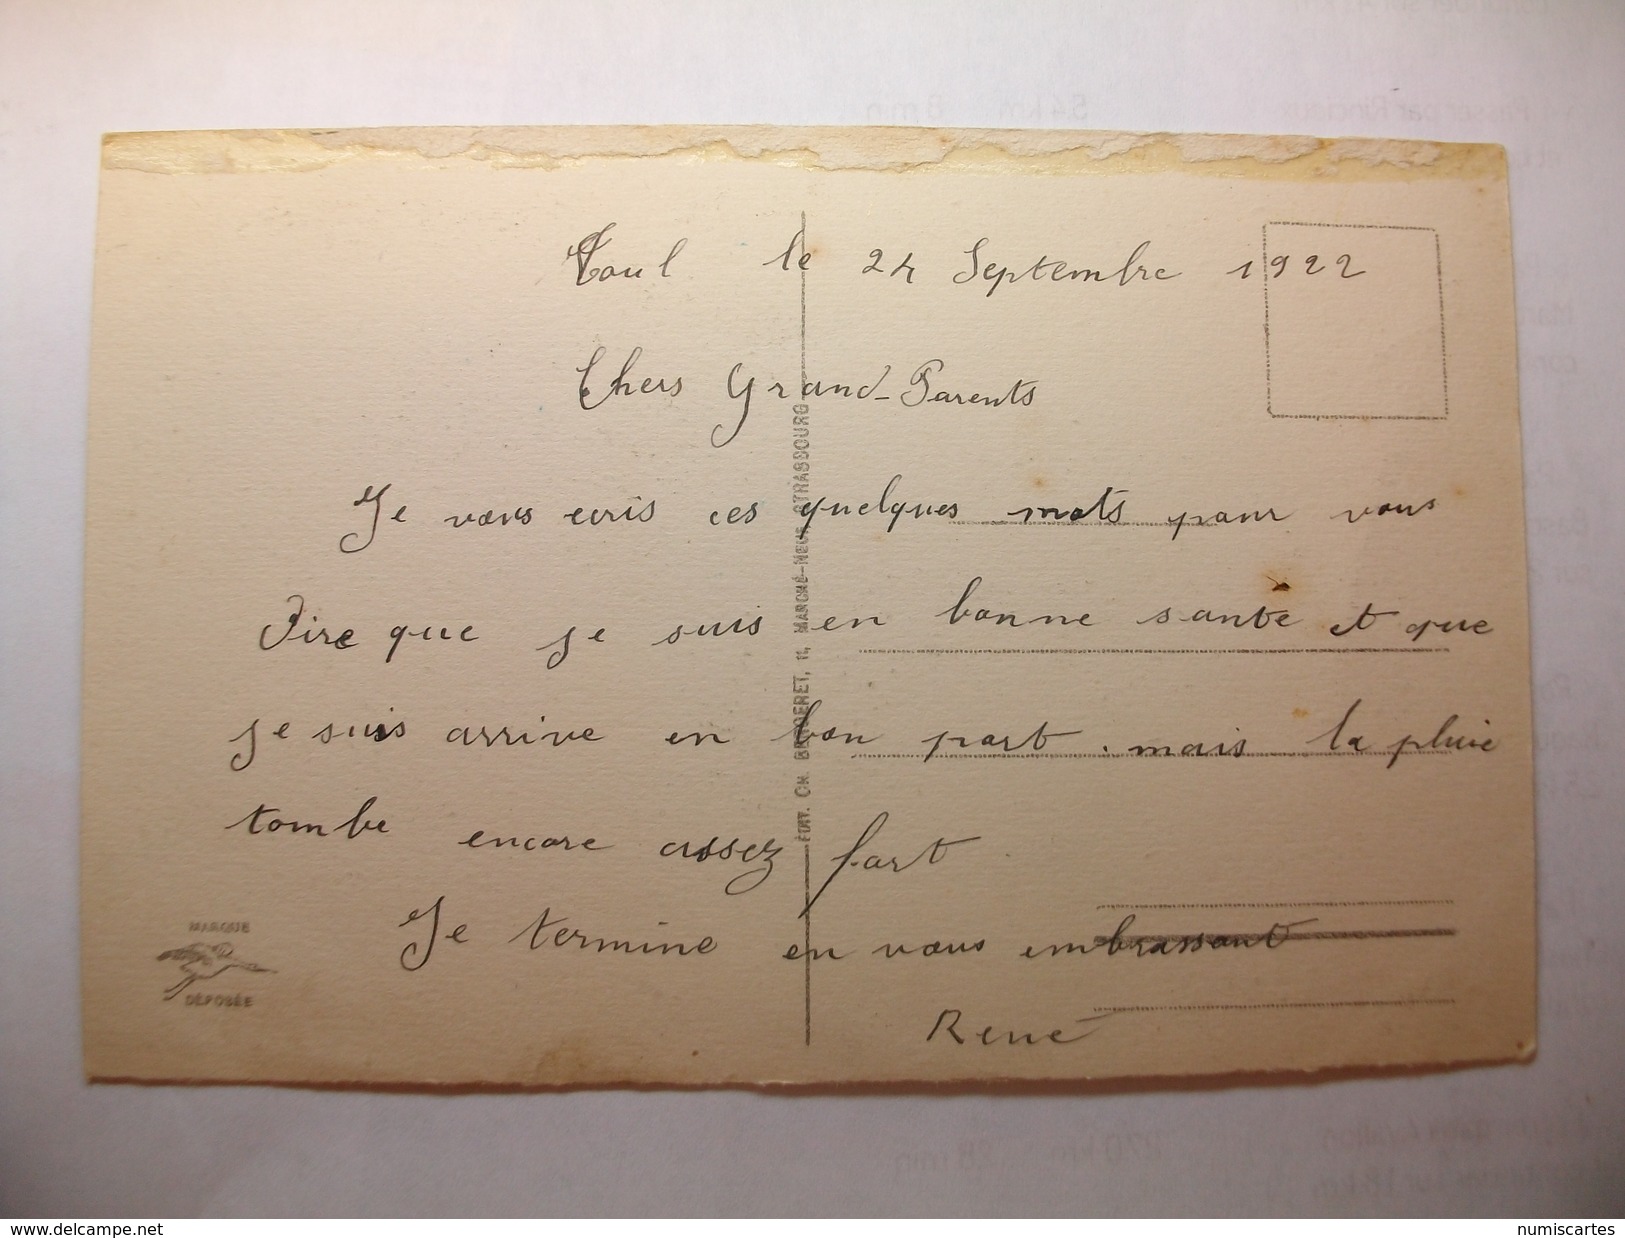 Toul le 24 Septembre 1922
Chers Grand-Parents
Je vous ecris ces quelques mots pour vous
Dire que je suis en bonne sante et que
je suis arrive en bon port. mais la pluie
tombe encore assez fort
Je termine en vous embrassant
René
MARQUE
DÉPOSÉE
ÉDIT. CH. BERGERET, 11, MARCHÉ-NEUF, STRASBOURG
delcampe.net
numiscartes